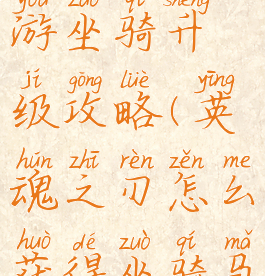 yóu zuò qí shēng
游坐骑升
jí gōng lüè yīng
级攻略(英
hún zhī rèn zěn me
魂之刃怎么
huò dé zuò qí mǎ
获得坐骑马